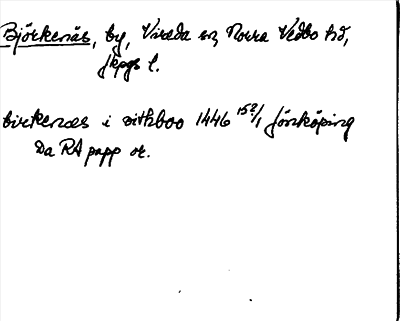 Björkenäs, by, Vireda sn, Norra Vedbo hd,
Jkpgs l.
birkenæs i vithboo 1446 15?/1 Jönköping
Da RA papp or.